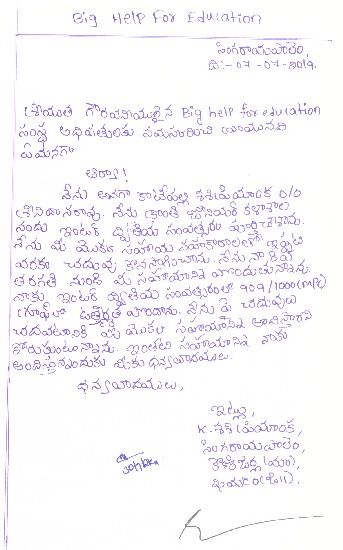 Big Help For Education
సింగరాయపాలెం,
ది:-07-07-2019.
శ్రీయుత గౌరవనీయులైన Big help for education
సంస్థ అధిపతులకు నమస్కరించి వ్రాయునది
ఏమనగా
ఆర్యా!
నేను అనగా కాటేపల్లి శశిప్రియాంక D/o
శ్రీనివాసరావు. నేను క్రాంతి జూనియర్ కళాశాల
నందు ఇంటర్ ద్వితీయ సంవత్సరం పూర్తిచేశాను.
నేను మీ యొక్క సహాయ సహకారాలతో ఇప్పటి
వరకు చదువు కొనసాగించాను. నేను నా
తరగతి నుండి మీ సహాయాన్ని పొందుతున్నాను.
నాకు ఇంటర్ ద్వితీయ సంవత్సరంలో 909/1000 (MPC)
గ్రూప్‌లో ఉత్తీర్ణత పొందాను. నేను పై చదువులు
చదవటానికి మీ యొక్క సహాయాన్ని అందిస్తారని
కోరుకుంటున్నాను. ఇంతటి సహాయాన్ని నాకు
అందిస్తున్నందుకు మీకు ధన్యవాదములు.
ధన్యవాదములు,
ఇట్లు,
K. శశిప్రియాంక,
సింగరాయపాలెం,
(మం),
(జి||).